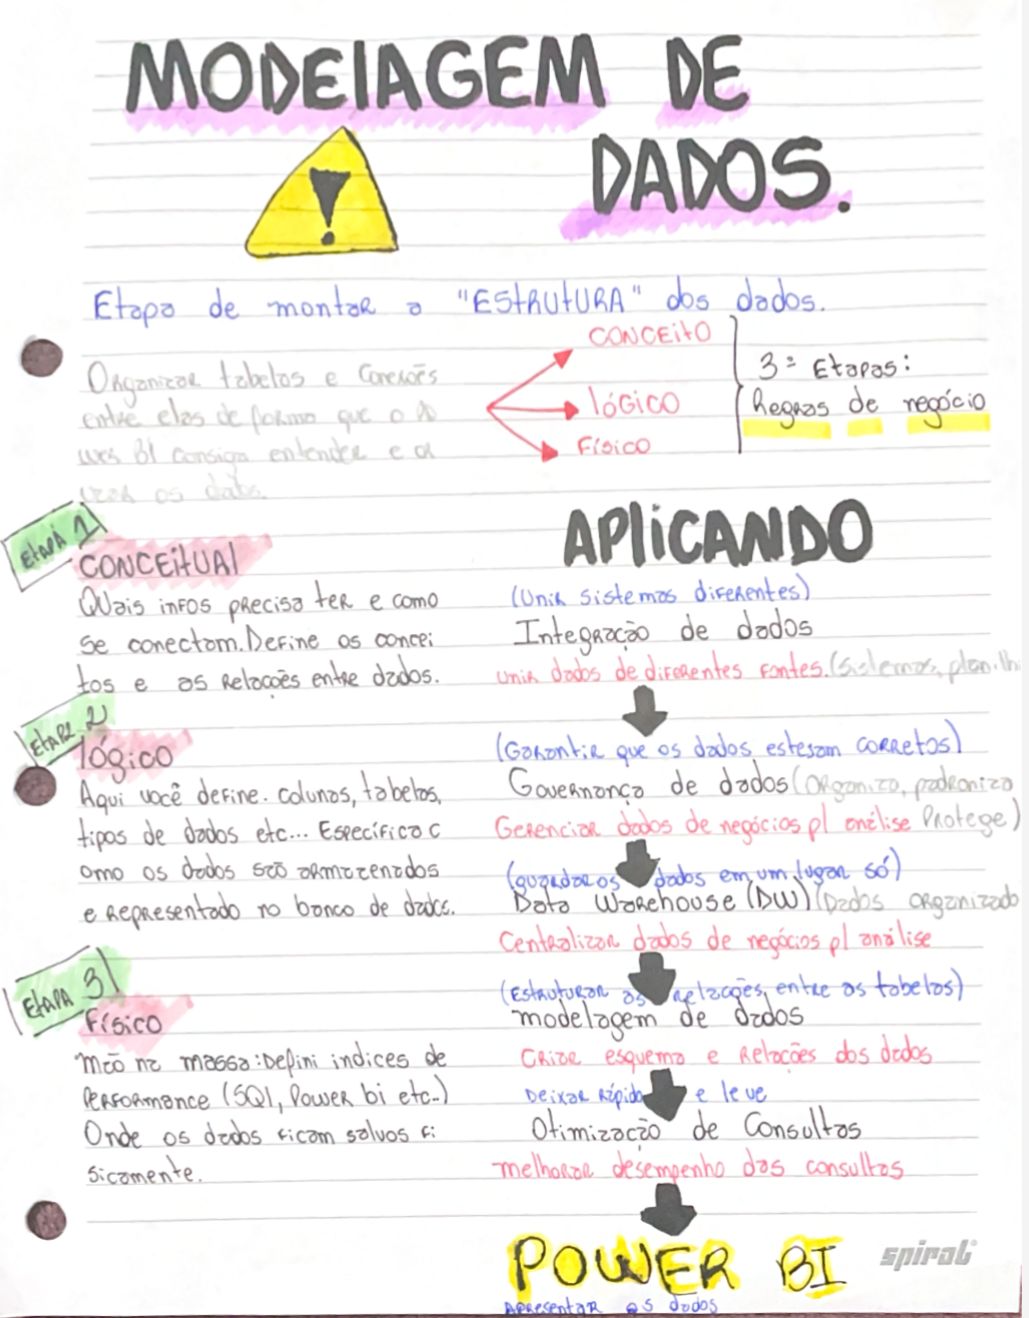 MODElAGEM DE
DADOS.
Etapa de montar a "EStRUtURA" dos dados.
Organizar tabelas e conexões
entre elas de forma que o Po
wer BI consiga entender e a
os dados.
CONCEitO
lóGiCO
Físico
3ª Etapas:
Regras de negócio
EtapA 1
CONCEitUAl
Quais infos precisa ter e como
se conectam. Define os concei
tos e as Relações entre dados.
EtApa 2
lógico
Aqui você define. colunas, tabelas,
tipos de dados etc... Específica c
omo os dados são armazenados
e representado no banco de dados.
EtapA 3
Físico
Mão na massa: Defini indices de
Performance (SQl, Power bi etc..)
Onde os dados ficam salvos fi
sicamente.
APliCANDO
(Unir sistemas diferentes)
Integração de dados
unir dados de diferentes fontes. (Sistemas, planilh
(Garantir que os dados estejam corretos)
Governança de dados (Organiza, padroniza
Gerenciar dados de negócios p/ análise Protege)
(guardar os dados em um lugar só)
Data Warehouse (DW) (Dados organizado
Centralizar dados de negócios p/ análise
(Estruturar as relações, entre as tabelas)
modelagem de dados
Criar esquema e Relações dos dados
Deixar Rápido e leve
Otimização de Consultas
melhorar desempenho das consultas
POWER BI
Apresentar os dados
spiral